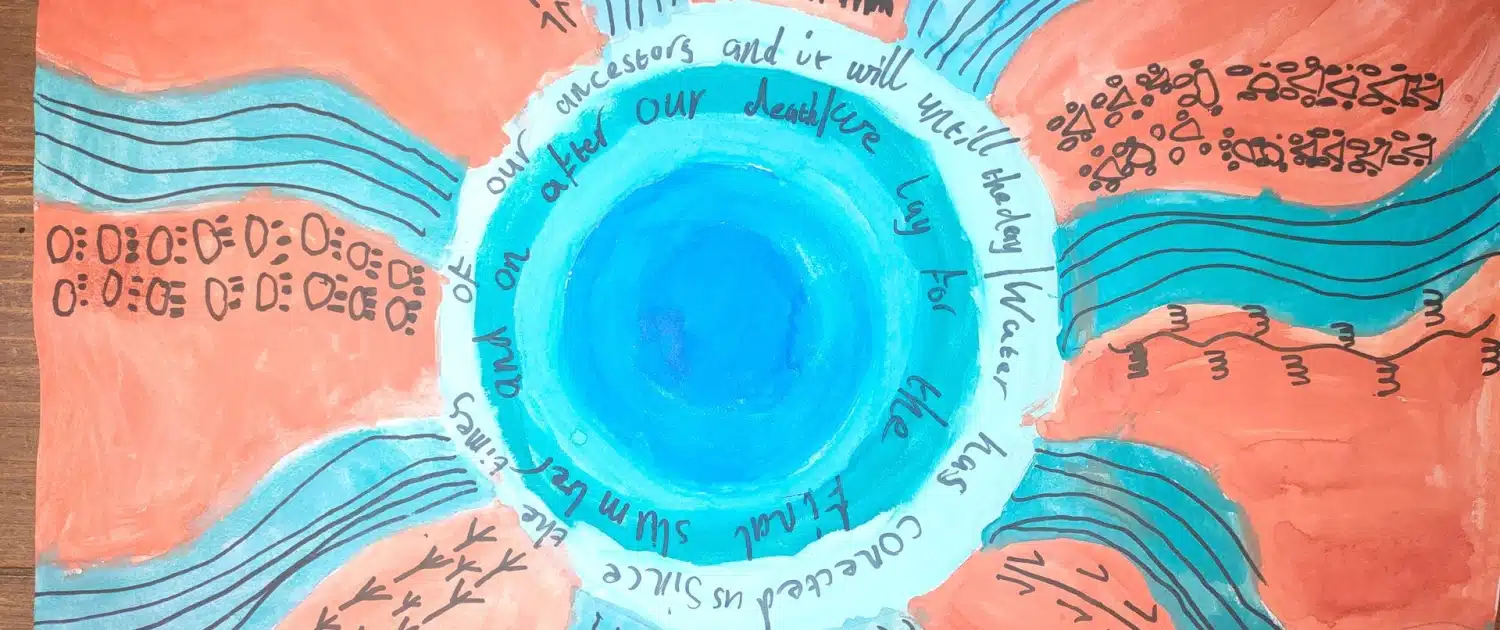 Water has conected us Since the times of our ancestors and it will untill the day/
we lay for the final slumber and on after our death/